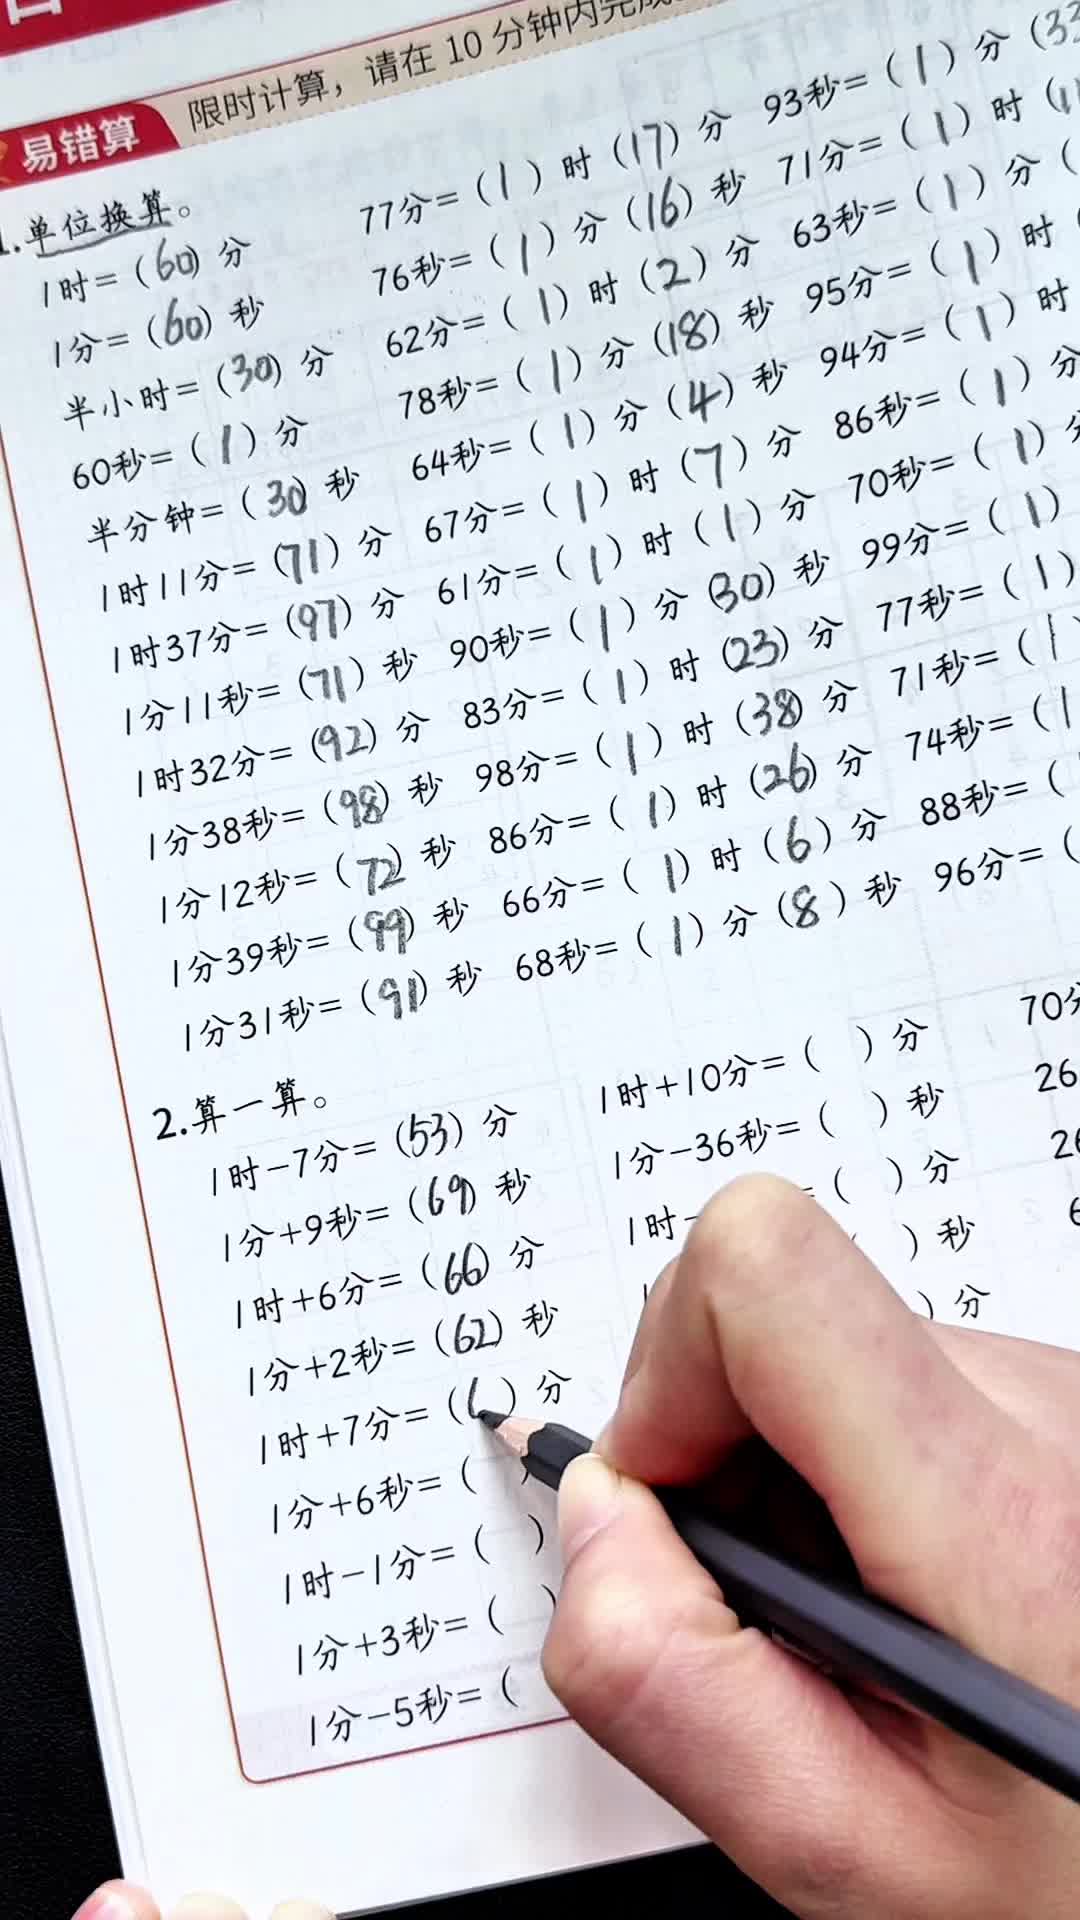 限时计算，请在10分钟内完成
易错算
1.单位换算。
1时=(60)分
1分=(60)秒
半小时=(30)分
60秒=(1)分
半分钟=(30)秒
1时11分=(71)分
1时37分=(97)分
1分11秒=(71)秒
1时32分=(92)分
1分38秒=(98)秒
1分12秒=(72)秒
1分39秒=(99)秒
1分31秒=(91)秒
77分=(1)时(17)分
76秒=(1)分(16)秒
62分=(1)时(2)分
78秒=(1)分(18)秒
64秒=(1)分(4)秒
67分=(1)时(7)分
61分=(1)时(1)分
90秒=(1)分(30)秒
83分=(1)时(23)分
98分=(1)时(38)分
86分=(1)时(26)分
66分=(1)时(6)分
68秒=(1)分(8)秒
93秒=(1)分(33
71分=(1)时(11
63秒=(1)分(
95分=(1)时(
94分=(1)时
86秒=(1)分
70秒=(1)分
99分=(1)
77秒=(1)
71秒=(1
74秒=(1
88秒=(
96分=(
2.算一算。
1时-7分=(53)分
1分+9秒=(69)秒
1时+6分=(66)分
1分+2秒=(62)秒
1时+7分=(6)分
1分+6秒=(
1时-1分=( )
1分+3秒=( )
1分-5秒=(
1时+10分=( )分
1分-36秒=( )秒
1时- =( )分
)秒
)分
70分
26
26
6